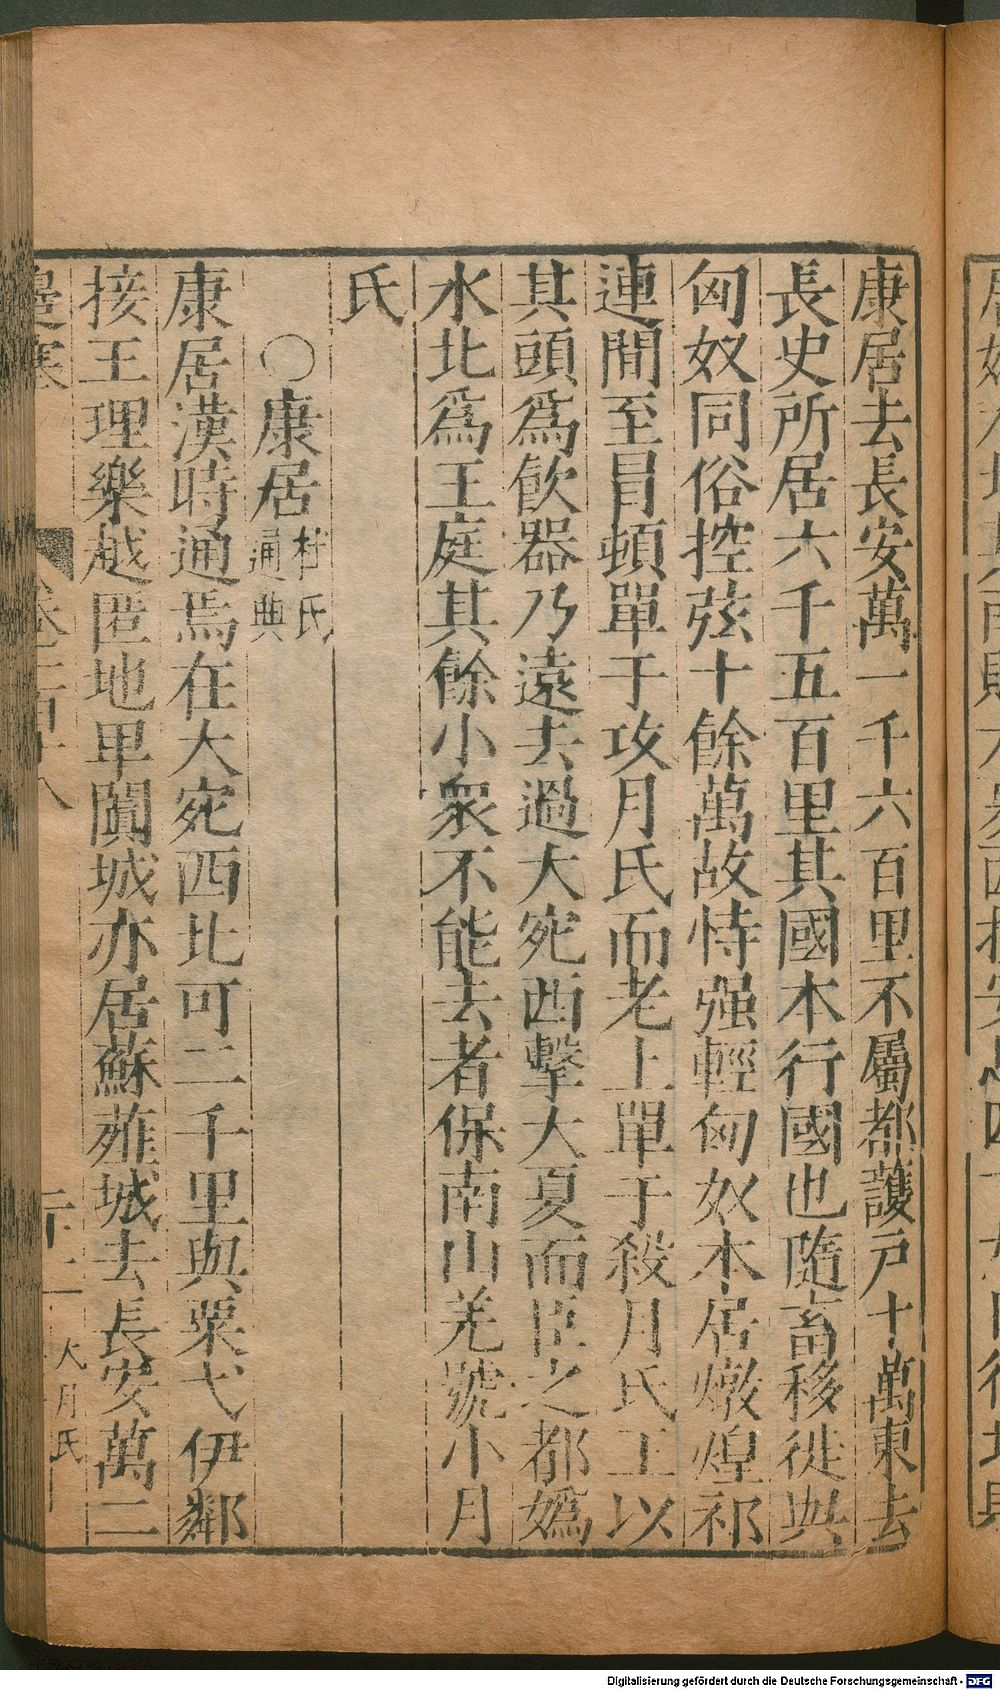 康居去長安萬一千六百里不屬都護戸十萬東去
長史所居六千五百里其國本行國也隨畜移徙與
匈奴同俗控弦十餘萬故恃强輕匈奴本居燉煌祁
連間至冒頓單于攻月氏而老上單于殺月氏王以
其頭爲飲器乃遠去過大宛西擊大夏而臣之都嬀
水北爲王庭其餘小衆不能去者保南山羌號小月
氏
〇康居杜氏通典
康居漢時通焉在大宛西北可二千里與粟弋伊鄰
接王理樂越匿地卑闐城亦居蘇薤城去長安萬二
邊塞 卷二百十八 大月氏
Digitalisierung gefördert durch die Deutsche Forschungsgemeinschaft - DFG